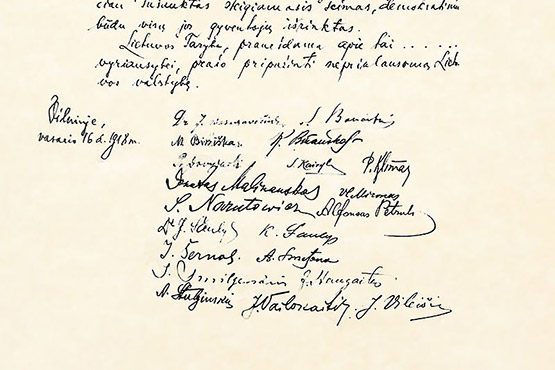 ciau sušauktas steigiamasis seimas, demokratiniu
būdu visų jos gyventojų išrinktas.
Lietuvos Taryba, pranešdama apie tai . . . . . .
vyriausybei, prašo pripažinti nepriklausomą Lietu-
vos valstybę.
Vilniuje,
vasario 16 d. 1918 m.
Dr. J. Basanavičius S. Banaitis
M. Biržiška K. Bizauskas
Pr. Dovydaitis S. Kairys P. Klimas
Donatas Malinauskas Vl. Mironas
S. Narutowicz Alfonsas Petrulis
Dr J. Šaulys K. Šaulys
J. Šernas A. Smetona
J. Smilgevičius J. Staugaitis
A. Stulginskis J. Vailokaitis J. Vileišis